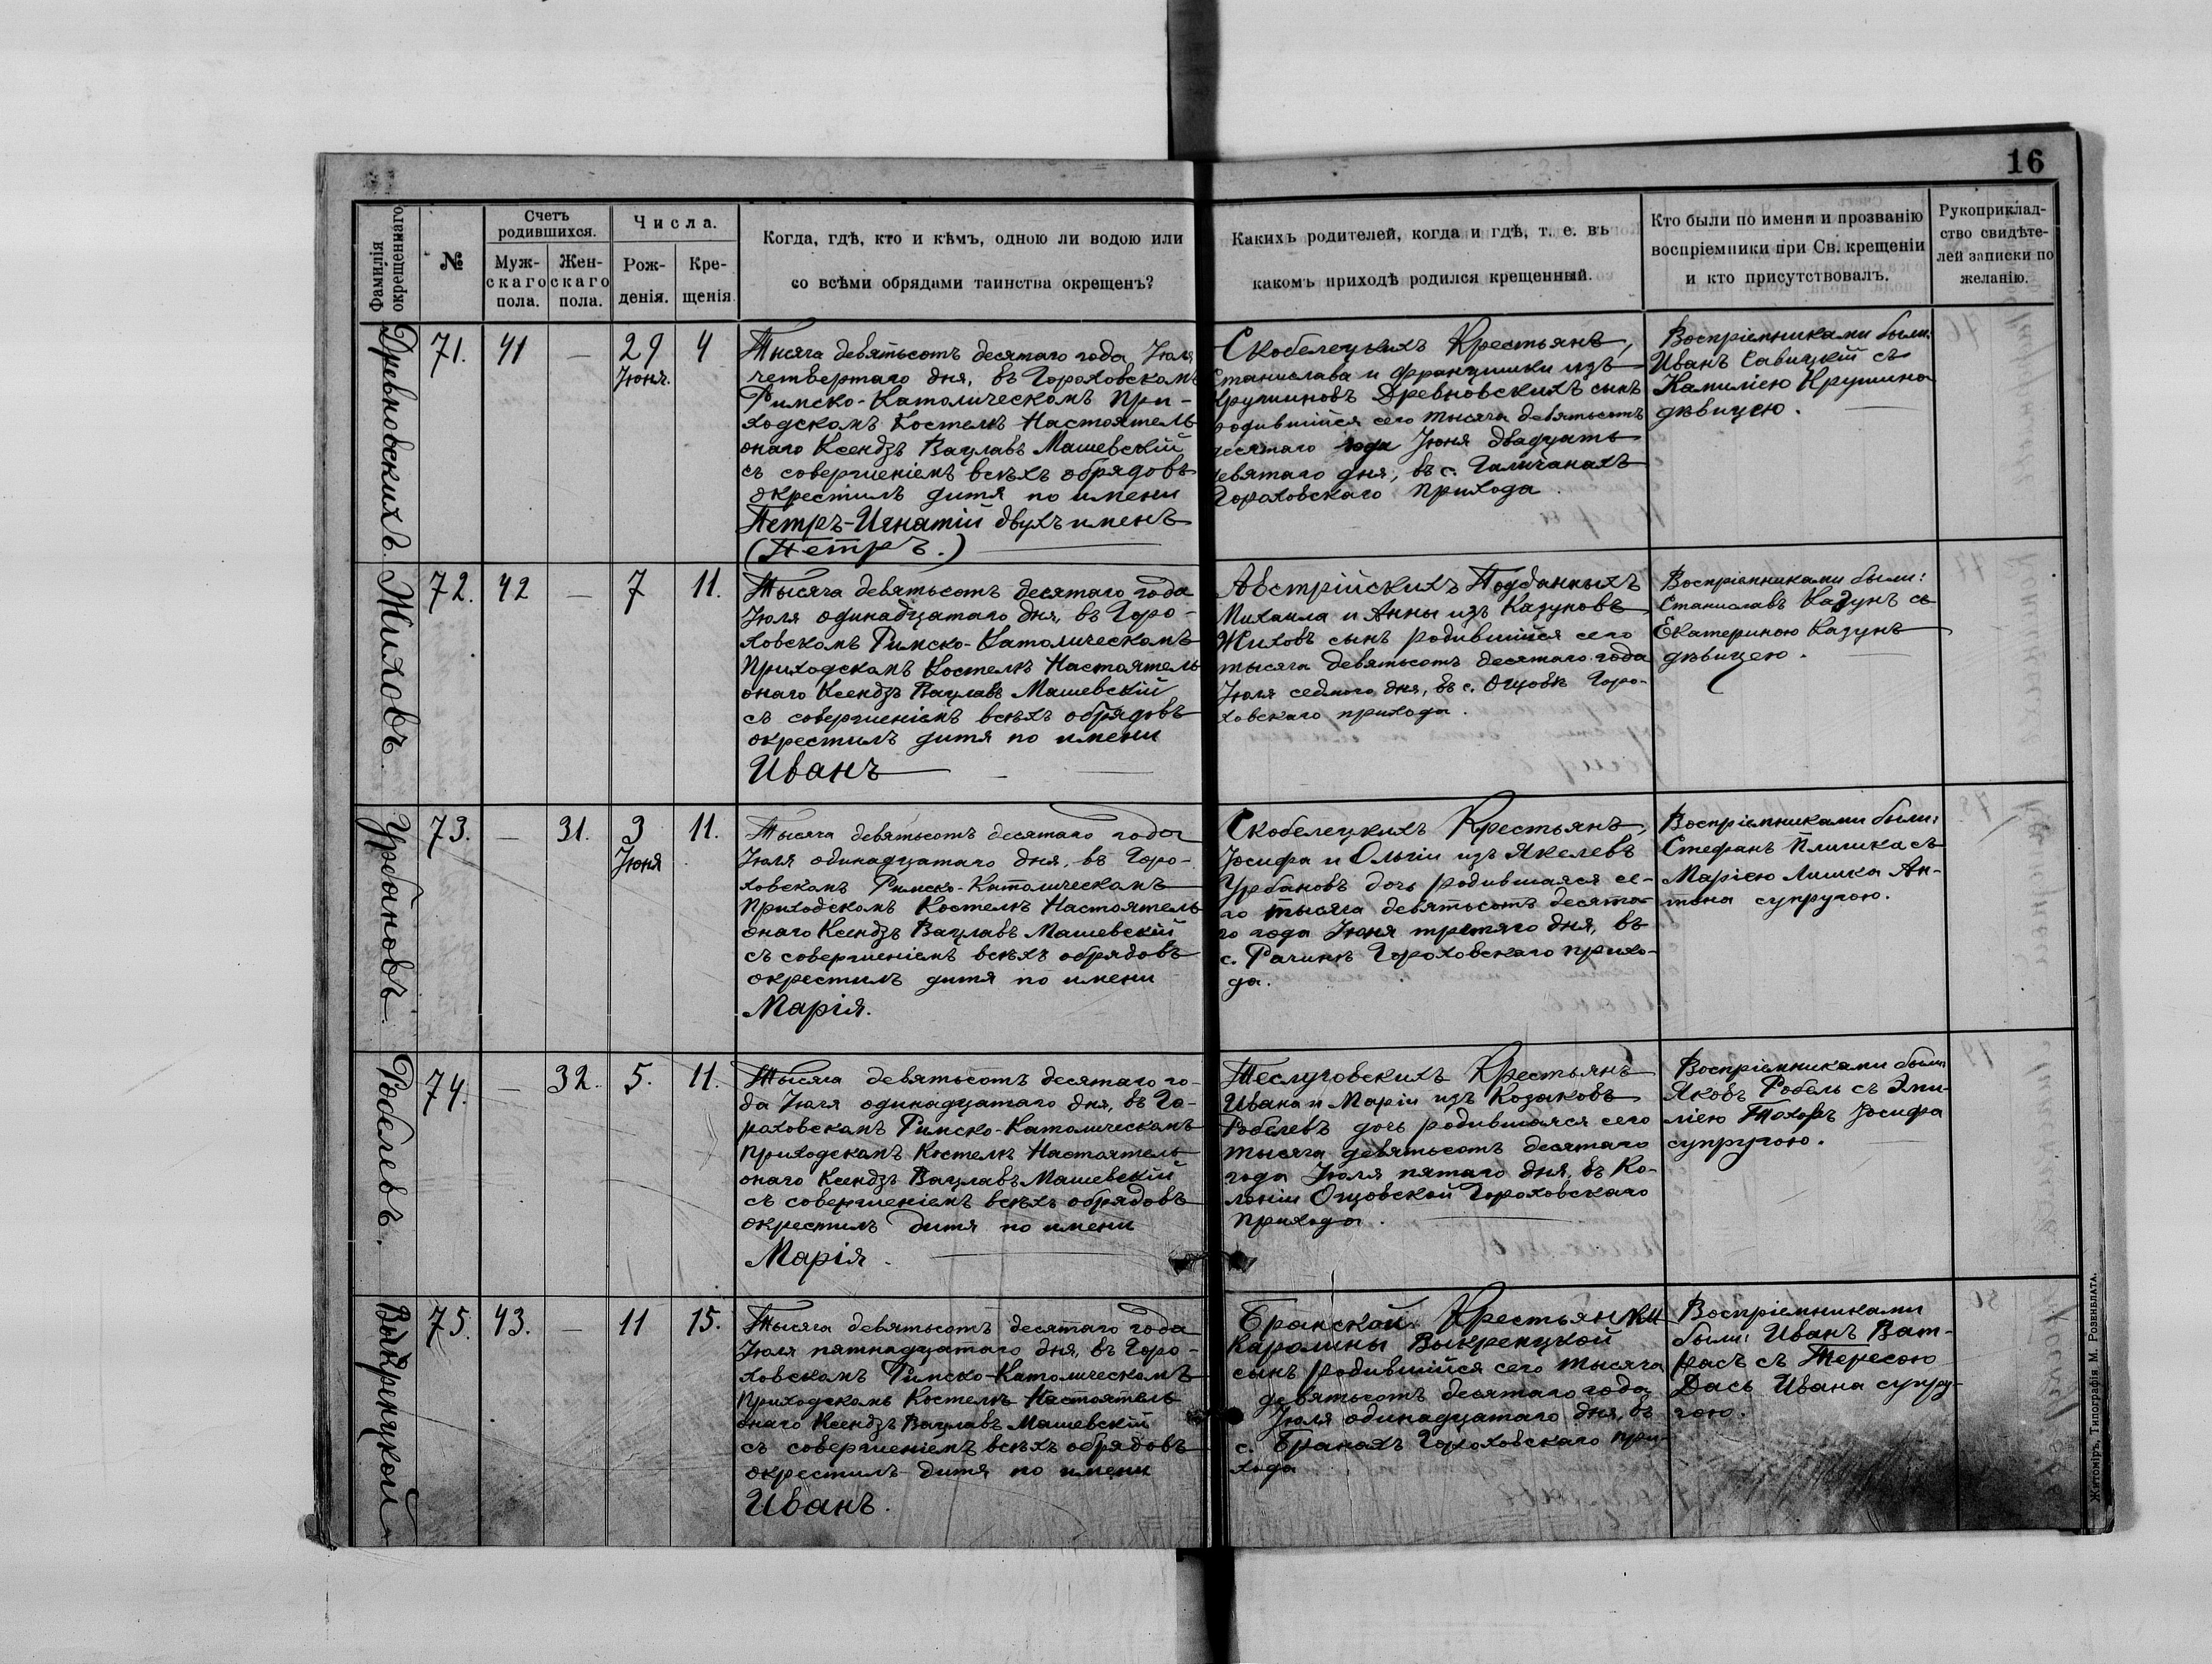 16
Фамилія окрещеннаго
№
Счетъ родившихся.
Мужскаго пола.
Женскаго пола.
Числа.
Рожденія.
Крещенія
Когда, гдѣ, кто и кѣмъ, одною ли водою или
со всѣми обрядами таинства окрещенъ?
Какихъ родителей, когда и гдѣ, т. е. въ
какомъ приходѣ родился крещенный.
Кто были по имени и прозванію
воспріемники при Св. крещеніи
и кто присутствовалъ.
Рукоприклад-
ство свидѣте-
лей записки по
желанію.
Древновскихъ.
71.
41
—
29
Юня.
4
Тысяча девятьсотъ десятаго года Іюля
четвертаго дня, въ Гороховскомъ
Римско-Католическомъ При-
ходскомъ Костелѣ Настоятель
онаго Ксендзъ Вацлавъ Машевскій
съ совершеніемъ всѣхъ обрядовъ
окрестилъ дитя по имени
Петръ-Игнатій двухъ именъ
(Петръ.)
Скобелецкихъ Крестьянъ,
Станислава и Францишки изъ
Крушиновъ Древновскихъ сынъ
родившійся сего тысяча девятьсотъ
десятаго года Юня двадцать
девятаго дня, въ с. Галичанахъ
Гороховскаго прихода.
Воспріемниками были:
Иванъ Савицкій съ
Камиліею Крушина
дѣвицею.
Жиховъ.
72.
42
—
7
11.
Тысяча девятьсотъ десятаго года
Іюля одинадцатаго дня, въ Горо-
ховскомъ Римско-Католическомъ
Приходскомъ Костелѣ Настоятель
онаго Ксендзъ Вацлавъ Машевскій
съ совершеніемъ всѣхъ обрядовъ
окрестилъ дитя по имени
Иванъ
Австрійскихъ Подданныхъ
Михаила и Анны изъ Казуновъ
Жиховъ сынъ родившійся сего
тысяча девятьсотъ десятаго года
Іюля седмого дня, въ с. Ощовѣ Горо-
ховскаго прихода.
Воспріемниками были:
Станиславъ Казунъ съ
Екатериною Казунъ
дѣвицею.
Урбановъ.
73.
—
31.
3
Юня
11.
Тысяча девятьсотъ десятаго года
Іюля одинадцатаго дня, въ Горо-
ховскомъ Римско-Католическомъ
Приходскомъ Костелѣ Настоятель
онаго Ксендзъ Вацлавъ Машевскій
съ совершеніемъ всѣхъ обрядовъ
окрестилъ дитя по имени
Марія.
Скобелецкихъ Крестьянъ,
Іосифа и Ольгіи изъ Якелевъ
Урбановъ дочь родившаяся се-
го тысяча девятьсотъ десята-
го года Юня третяго дня, въ
с. Рачинѣ Гороховскаго прихо-
да.
Воспріемниками были:
Стефанъ Плишка съ
Маріею Лишка Ан-
тона супругою.
Робелевъ.
74.
—
32.
5.
11.
Тысяча девятьсотъ десятаго го-
да Іюля одинадцатаго дня, въ Го-
роховскомъ Римско-Католическомъ
Приходскомъ Костелѣ Настоятель
онаго Ксендзъ Вацлавъ Машевскій
съ совершеніемъ всѣхъ обрядовъ
окрестилъ дитя по имени
Марія.
Теслуговскихъ Крестьянъ
Ивана и Маріи изъ Козаковъ
Робелевъ дочь родившаяся сего
тысяча девятьсотъ десятаго
года Іюля пятаго дня, въ Ко-
лоніи Ощовской Гороховскаго
прихода.
Воспріемниками были
Яковъ Робель съ Эми-
ліею Тохоръ Іосифа
супругою.
Выкренцкой
75.
43.
—
11
15.
Тысяча девятьсотъ десятаго года
Іюля пятнадцатаго дня, въ Горо-
ховскомъ Римско-Католическомъ
Приходскомъ Костелѣ Настоятель
онаго Ксендзъ Вацлавъ Машевскій
съ совершеніемъ всѣхъ обрядовъ
окрестилъ дитя по имени
Иванъ.
Бранской Крестьянки
Каролины Выкренцкой
сынъ родившійся сего тысяча
девятьсотъ десятаго года
Іюля одинадцатаго дня, въ
с. Бранахъ Гороховскаго при-
хода
Воспріемниками
были: Иванъ Ват-
расъ съ Тересою
Дась Ивана супру-
гою.
Житоміръ, Типографія М. Розенблата.